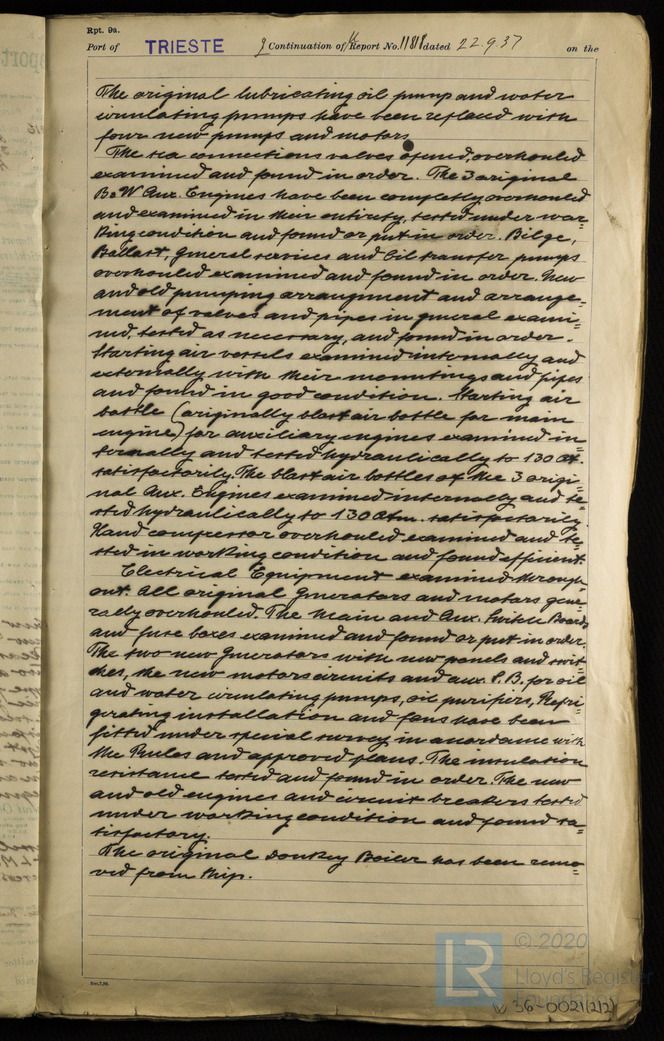 Rpt. 9a.
Port of TRIESTE Continuation of Report No. 11818 dated 22.9.37 on the
The original lubricating oil pump and water
circulating pumps have been replaced with
four new pumps and motors.
The sea connections valves opened, overhouled
examined and found in order. The 3 original
B&W Aux. Engines have been completly overhouled
and examined in their entirety, tested under wor=
king condition and found or put in order. Bilge,
Ballast, general services and Oil transfer pumps
overhouled examined and found in order. New
and old pumping arrangement and arrange=
ment of valves and pipes in general exami=
ned, tested as necessary, and found in order.
Starting air vessels examined internally and
externally with their mountings and pipes
and found in good condition. Starting air
bottle (originally blast air bottle for main
engine) for auxiliary engines examined in=
ternally and tested hydraulically to 130 at.
satisfactorily. The blast air bottles of the 3 origi=
nal Aux. Engines examined internally and te=
sted hydraulically to 130 Atm. satisfactorily.
Hand compressor overhouled examined and te=
sted in working condition and found efficient.
Electrical Equipment examined through=
out. All original Generators and motors gene=
rally overhouled. The Main and Aux. Switch Boards
and fuse boxes examined and found or put in order.
The two new generators with new panels and swit=
ches, the new motors circuits and aux. S.B. for oil
and water circulating pumps, oil purifiers, Refri=
gerating installation and fans have been
fitted under special survey in accordance with
the Rules and approved plans. The insulation
resistance tested and found in order. The new
and old engines and circuit breakers tested
under working condition and found sa=
tisfactory.
The original Donkey Boiler has been remo=
ved from Ship.
© 2020
LR Lloyd's Register
W 36-0021(2/2)